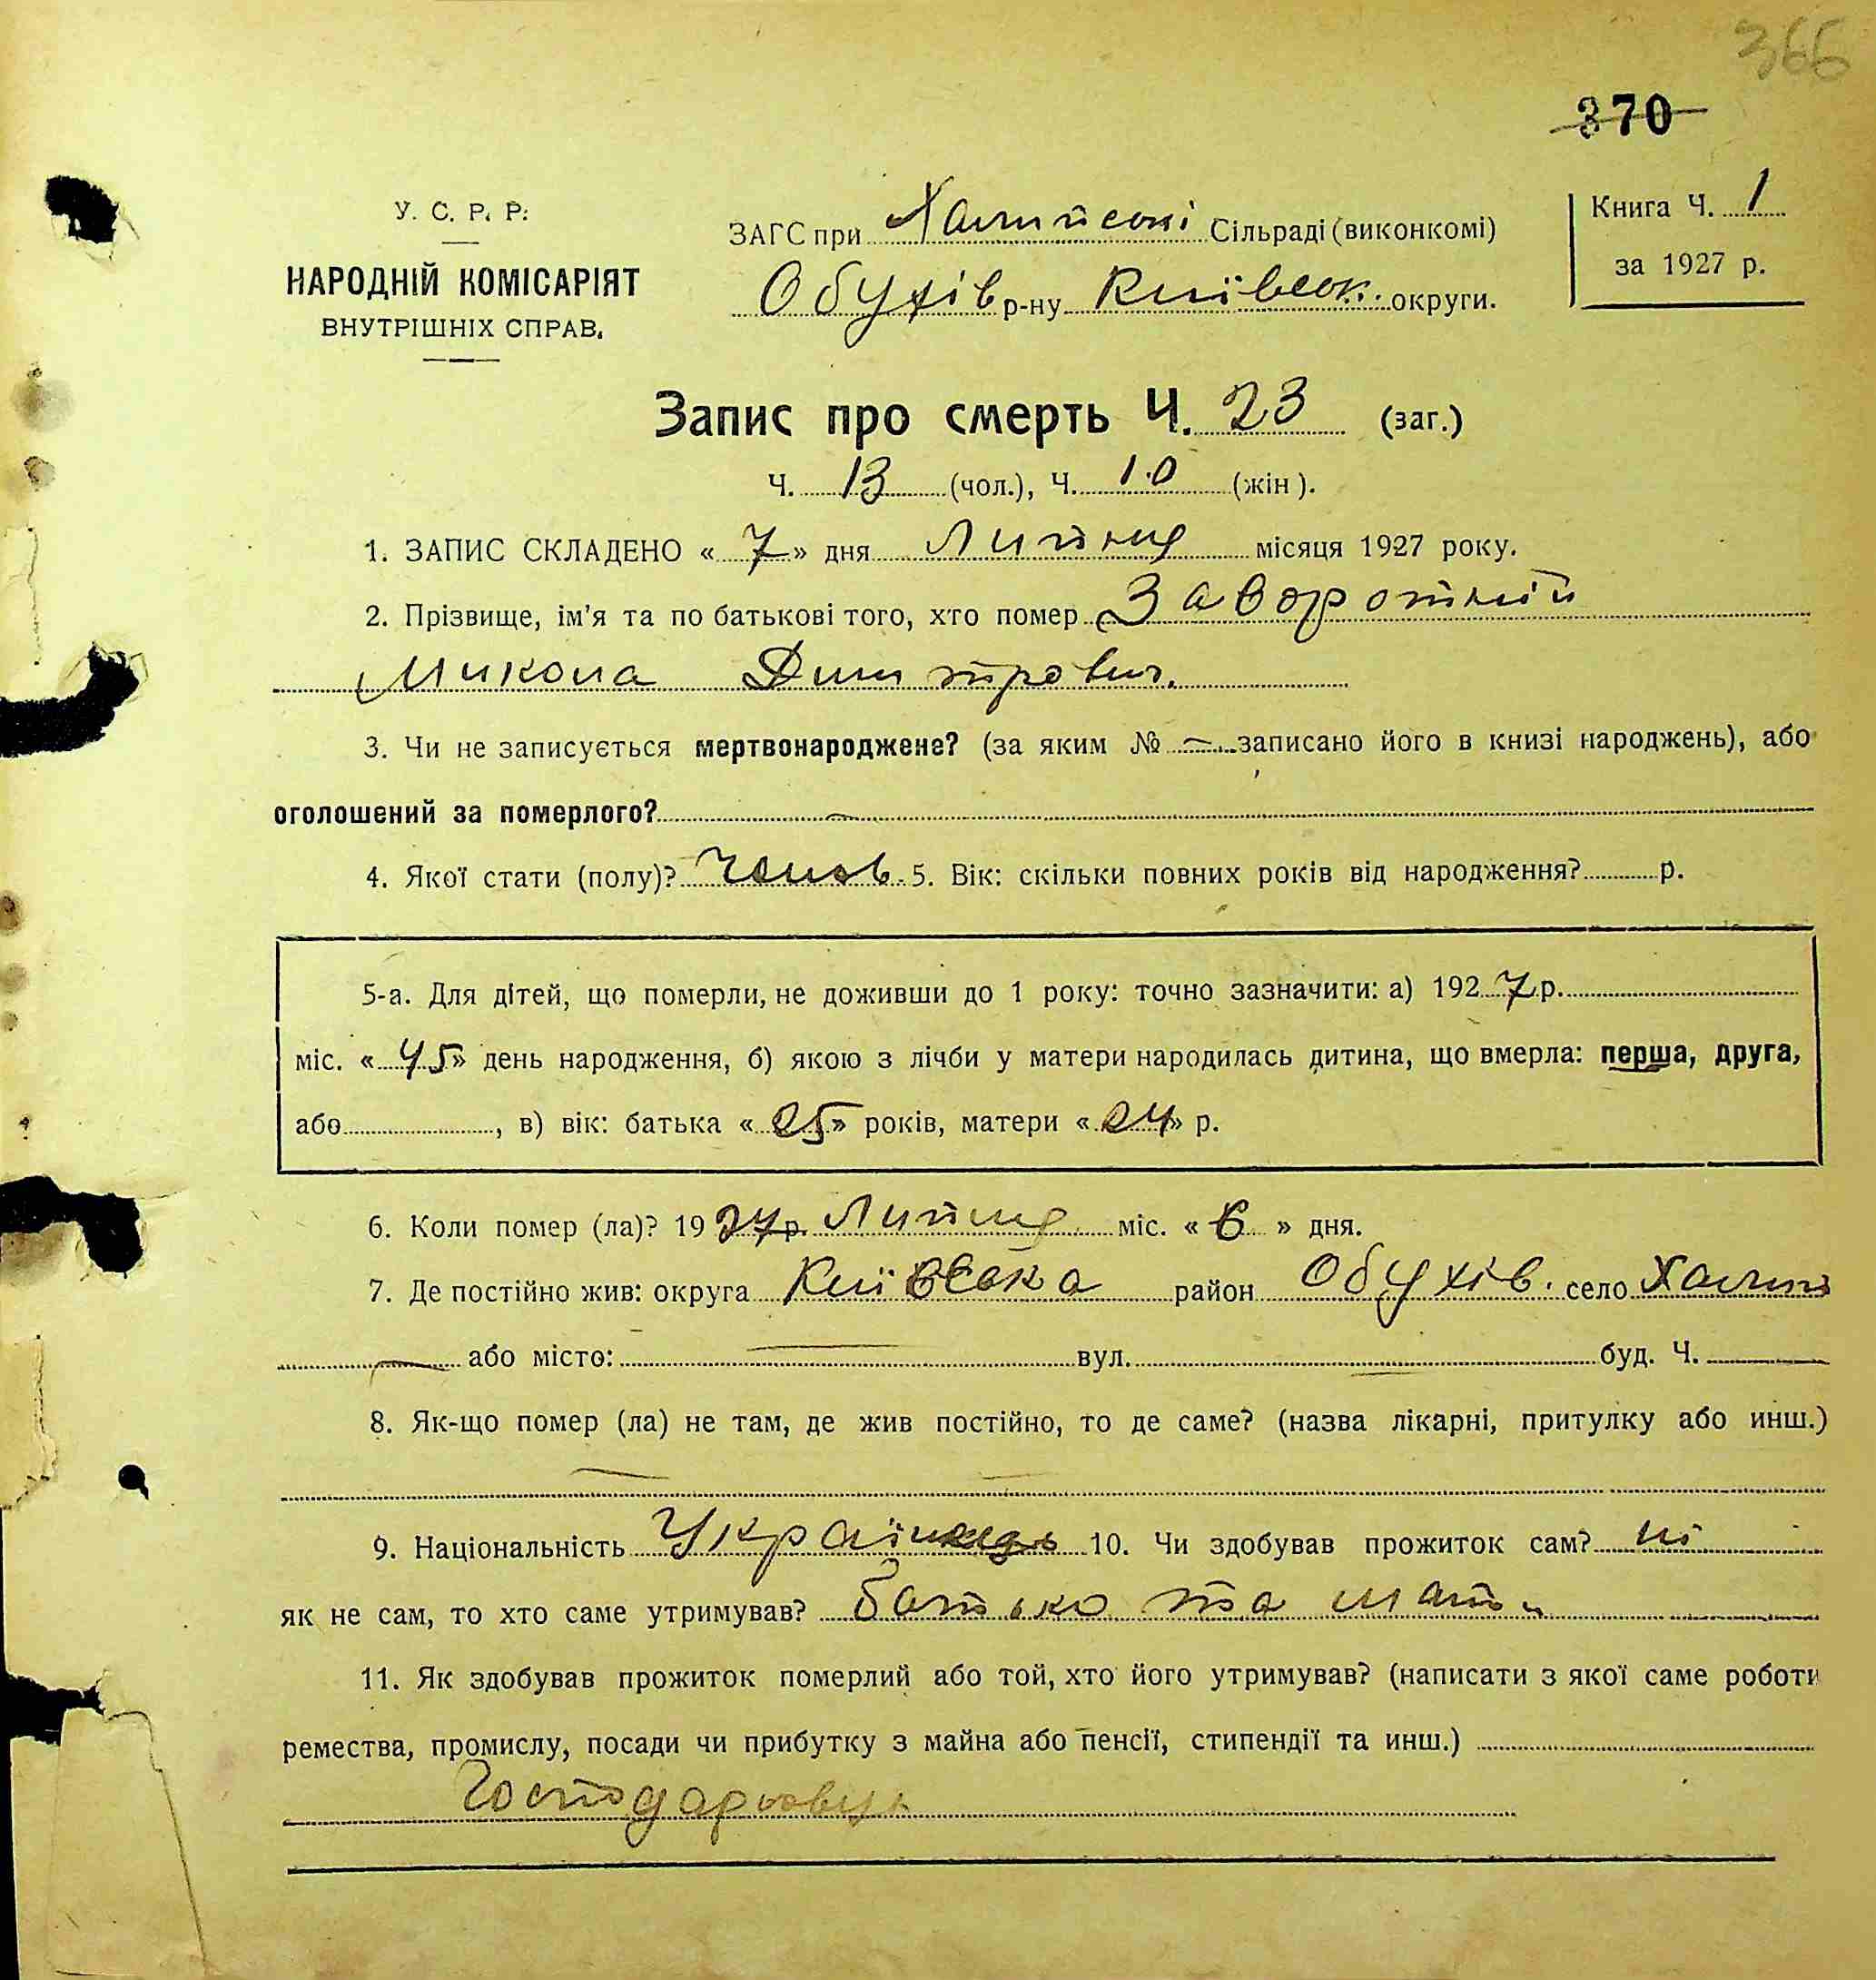 366
370
У. С. Р. Р.
НАРОДНІЙ КОМІСАРІЯТ
ВНУТРІШНІХ СПРАВ.
ЗАГС при Халипські Сільраді (виконкомі)
Обухів р-ну Київськ. округи.
Книга Ч. 1
за 1927 р.
Запис про смерть Ч. 23 (заг.)
Ч. 13 (чол.), Ч. 10 (жін).
1. ЗАПИС СКЛАДЕНО « 7 » дня Липня місяця 1927 року.
2. Прізвище, ім'я та по батькові того, хто помер Заворотній
Микола Дмитрович.
3. Чи не записується мертвонароджене? (за яким № — записано його в книзі народжень), або
оголошений за померлого? —
4. Якої стати (полу)? Чолов. 5. Вік: скільки повних років від народження? р.
5-а. Для дітей, що померли, не доживши до 1 року: точно зазначити: а) 1927 р.
міс. « 45 » день народження, б) якою з лічби у матери народилась дитина, що вмерла: перша, друга,
або , в) вік: батька « 25 » років, матери « 24 » р.
6. Коли помер (ла)? 1927 р. Липня міс. « 6 » дня.
7. Де постійно жив: округа Київська район Обухів. село Халипі
— або місто: — вул. — буд. Ч. —
8. Як-що помер (ла) не там, де жив постійно, то де саме? (назва лікарні, притулку або инш.)
— —
9. Національність Українець 10. Чи здобував прожиток сам? ні
як не сам, то хто саме утримував? батько та мати
11. Як здобував прожиток померлий або той, хто його утримував? (написати з якої саме роботи
ремества, промислу, посади чи прибутку з майна або пенсії, стипендії та инш.)